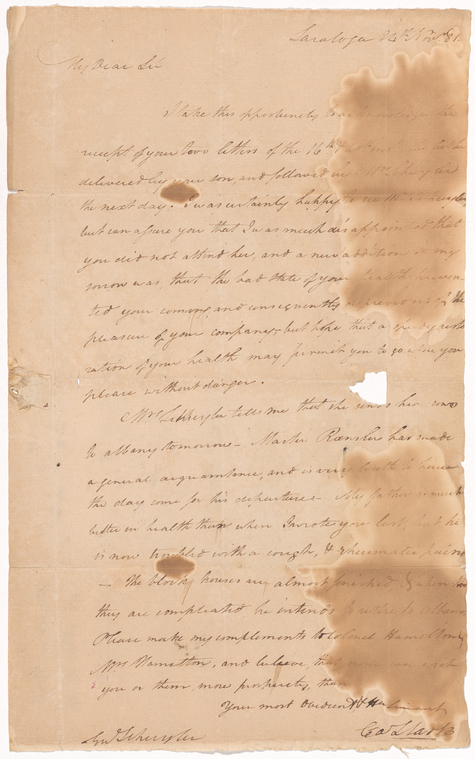 Saratoga 24th Novr 81
My Dear Sir
I take this opportunity to acknowledge the
receipt of your two letters of the 16th
delivered by your son, and followed
the next day. I was certainly happy to
but can assure you that I was much disappointed that
you did not attend her, and a new addition to my
sorrow was, that the bad state of your health
ted your coming, and consequently of the
pleasure of your company, but hope that a
ration of your health may permit you to go where you
please without danger.
Mrs Schuyler tells me that she sends her sons
to albany tomorrow — Master Rensler has made
a general acquaintance, and is very loath to have
the day come for his departure — My father is much
better in health than when I wrote you last, but he
is now troubled with a cough, & rheumatic pains
— The block houses are almost finished & when
they are compleated he intends to retire to Albany
Please make my complements to Colonel Hamilton &
Mrs Hamilton, and believe, that none can
you or them more prosperity, than
Your most Obedient Hul
Genl Schuyler